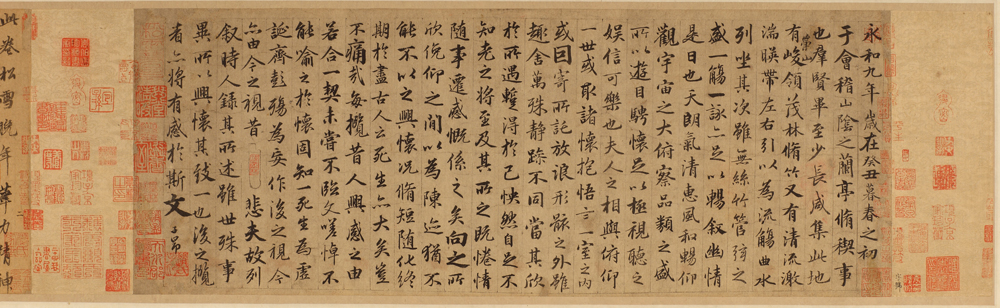 永和九年歲在癸丑暮春之初
于會稽山陰之蘭亭脩稧事
也羣賢畢至少長咸集此地
有崇山峻領茂林脩竹又有清流激
湍暎帶左右引以為流觴曲水
列坐其次雖無絲竹管弦之
盛一觴一詠亦足以暢敘幽情
是日也天朗氣清惠風和暢仰
觀宇宙之大俯察品類之盛
所以遊目騁懷足以極視聽之
娛信可樂也夫人之相與俯仰
一世或取諸懷抱悟言一室之內
或因寄所託放浪形骸之外雖
趣舍萬殊靜躁不同當其欣
於所遇暫得於己快然自足不
知老之將至及其所之既惓情
隨事遷感慨係之矣向之所
欣俛仰之閒以為陳迹猶不
能不以之興懷況脩短随化終
期於盡古人云死生亦大矣豈
不痛哉每攬昔人興感之由
若合一契未嘗不臨文嗟悼不
能喻之於懷固知一死生為虛
誕齊彭殤為妄作後之視今
亦由今之視昔悲夫故列
敘時人錄其所述雖世殊事
異所以興懷其致一也後之攬
者亦將有感於斯文
此卷松雪晚年筆力精神